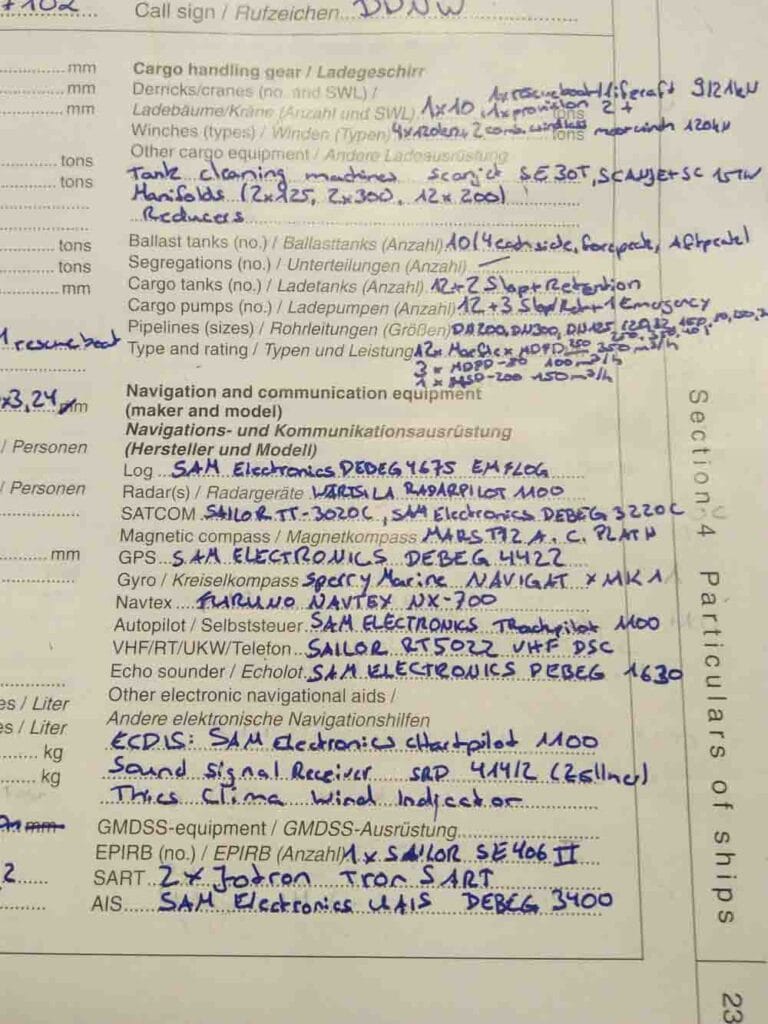 Call sign / Rufzeichen DDNW
mm
Cargo handling gear / Ladegeschirr
mm
Derricks/cranes (no. and SWL) / 1x rescueboat/liferaft 9/21kN
mm
Ladebäume/Kräne (Anzahl und SWL) 1x10, 1x provision 2 t
tons
Winches (types) / Winden (Typen) 4x120kN + 2 comb. windlass 120kN
tons
tons
Other cargo equipment / Andere Ladeausrüstung
tons
Tank cleaning machines scanjet SE30T, SCANJET SC 15TW
Manifolds (2x125, 2x300, 12x200)
Reducers
tons
Ballast tanks (no.) / Ballasttanks (Anzahl) 10 (4 each side, forepeak, Aftpeak)
tons
Segregations (no.) / Unterteilungen (Anzahl) —
mm
Cargo tanks (no.) / Ladetanks (Anzahl) 12+2 Slop+Retention
Cargo pumps (no.) / Ladepumpen (Anzahl) 12+3 Slop/Ret+1 Emergency
Pipelines (sizes) / Rohrleitungen (Größen) DN200, DN300, DN125,
1 rescueboat
Type and rating / Typen und Leistung 12x MarFlex MDPD 350 m³/h
3 x MDPD-80 100 m³/h
1 x MSD-200 150 m³/h
x3,24 mm
Navigation and communication equipment
(maker and model)
/ Personen
Navigations- und Kommunikationsausrüstung
(Hersteller und Modell)
Log SAM Electronics DEBEG 4675 EMFLOG
/ Personen
Radar(s) / Radargeräte WÄRTSILA RADARPILOT 1100
SATCOM SAILOR TT-3020C, SAM Electronics DEBEG 3220C
Magnetic compass / Magnetkompass C. PLATH
mm
GPS SAM ELECTRONICS DEBEG 4422
Gyro / Kreiselkompass Sperry Marine NAVIGAT X MK 1
Navtex FURUNO NAVTEX NX-700
Autopilot / Selbststeuer SAM ELECTRONICS Trackpilot 1100
VHF/RT/UKW/Telefon SAILOR RT5022 VHF DSC
Echo sounder / Echolot SAM ELECTRONICS DEBEG 4630
es / Liter
Other electronic navigational aids /
es / Liter
Andere elektronische Navigationshilfen
kg
ECDIS: SAM Electronics Chartpilot 1100
kg
Sound Signal Receiver SRD 414/2 (Zöllner)
Thies Clima Wind Indicator
mm
GMDSS-equipment / GMDSS-Ausrüstung
EPIRB (no.) / EPIRB (Anzahl) 1x SAILOR SE406 II
2
SART 2x Jotron Tron SART
AIS SAM Electronics UAIS DEBEG 3400
Section 4 Particulars of ships
23